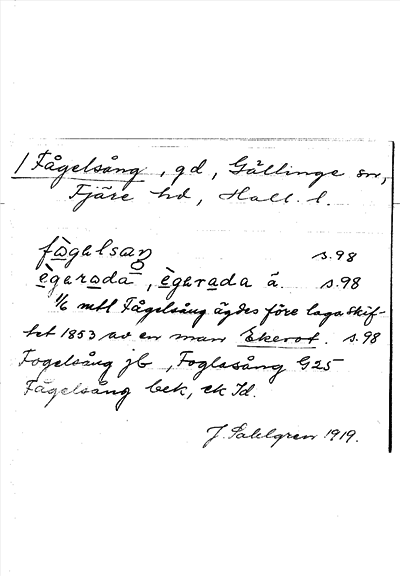 1 Fågelsång, gd, Gällinge sn,
Fjäre hd, Hall. l.
fògalsaŋ s.98
ègarada, ègarada ä. s.98
1/6 mtl Fågelsång ägdes före laga skif-
tet 1853 av en man Ekerot. s.98
Fogelsång jb, Foglasång G25
Fågelsång bek, ek Id.
J. Sahlgren 1919.